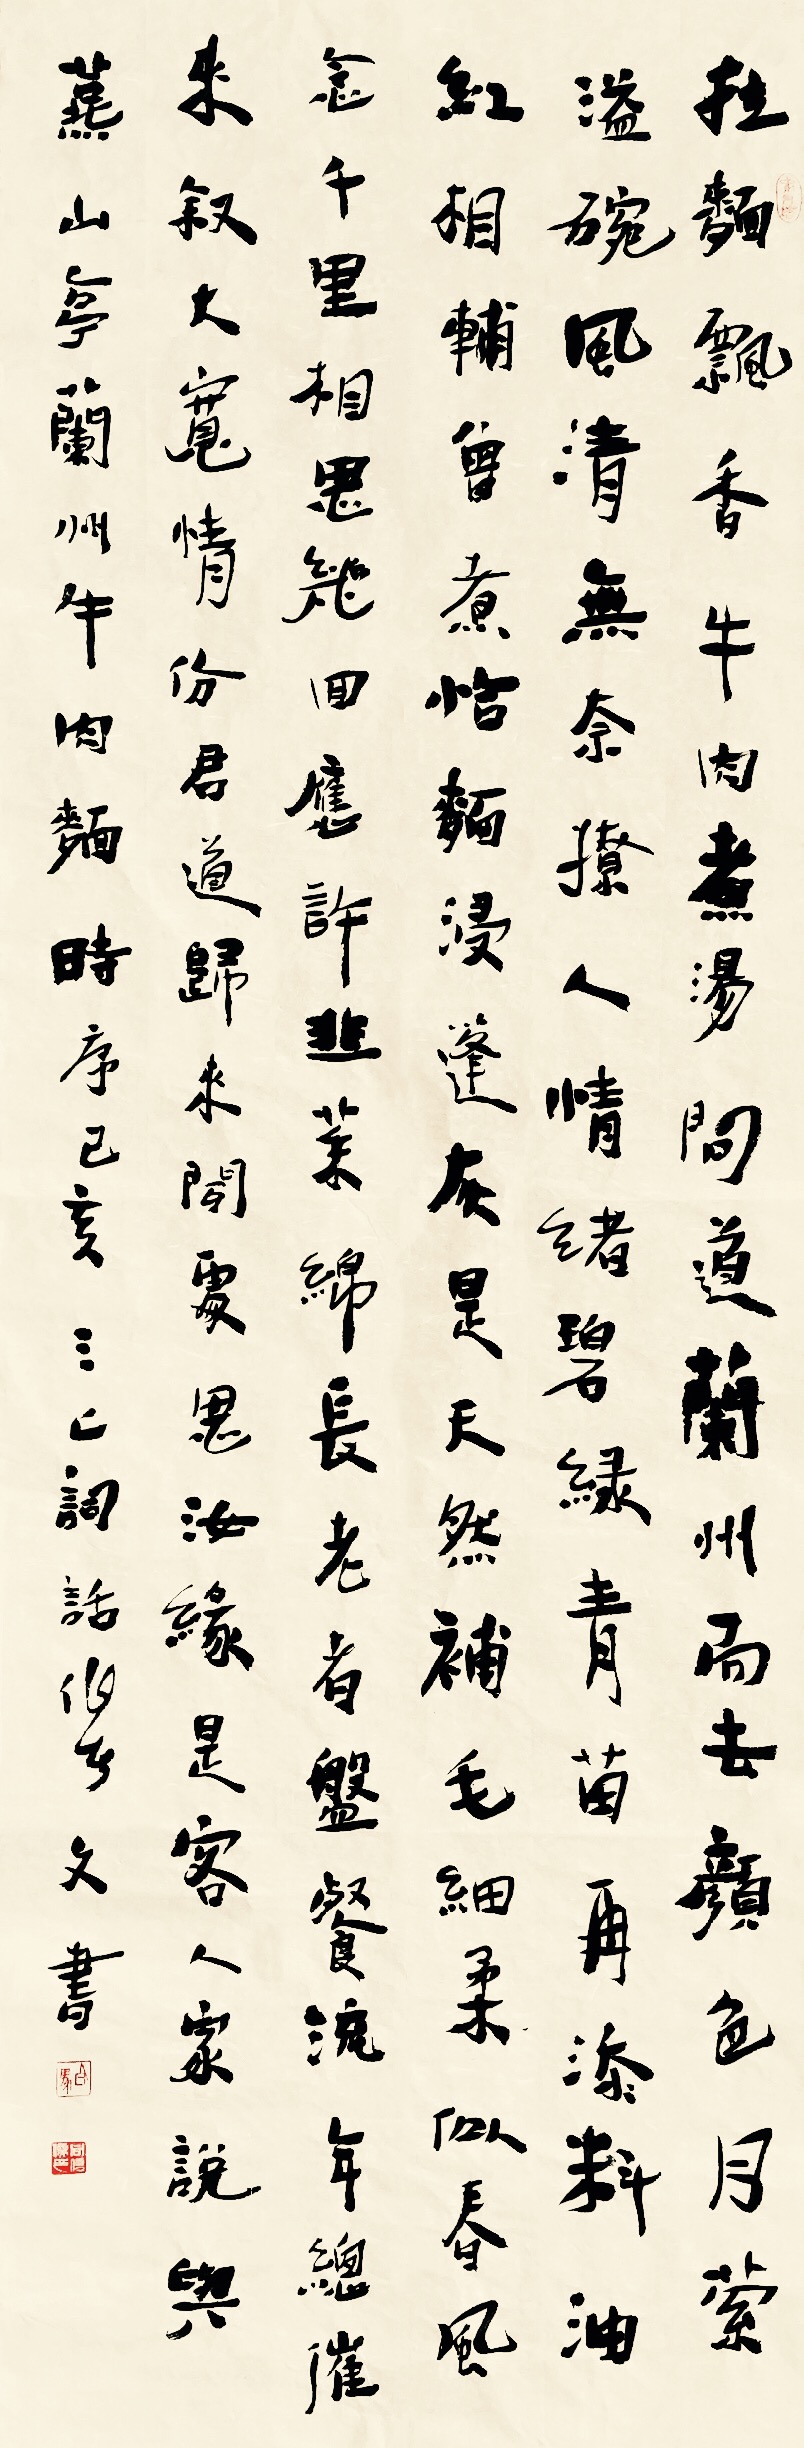 拉麵飄香牛肉煮湯問道蘭州而去顏色月縈
溢碗風清無奈撩人情緒碧綠青苗再添料油
紅相輔曾煮恰麵浸蓬灰是天然補毛細柔似春風
念千里相思能回應許韭葉綿長老者盤餐流年總催
來敘大寬情份君道歸來聞處思汝緣是客人家說與
燕山亭蘭州牛肉麵時序己亥三亡詞話伯安文書